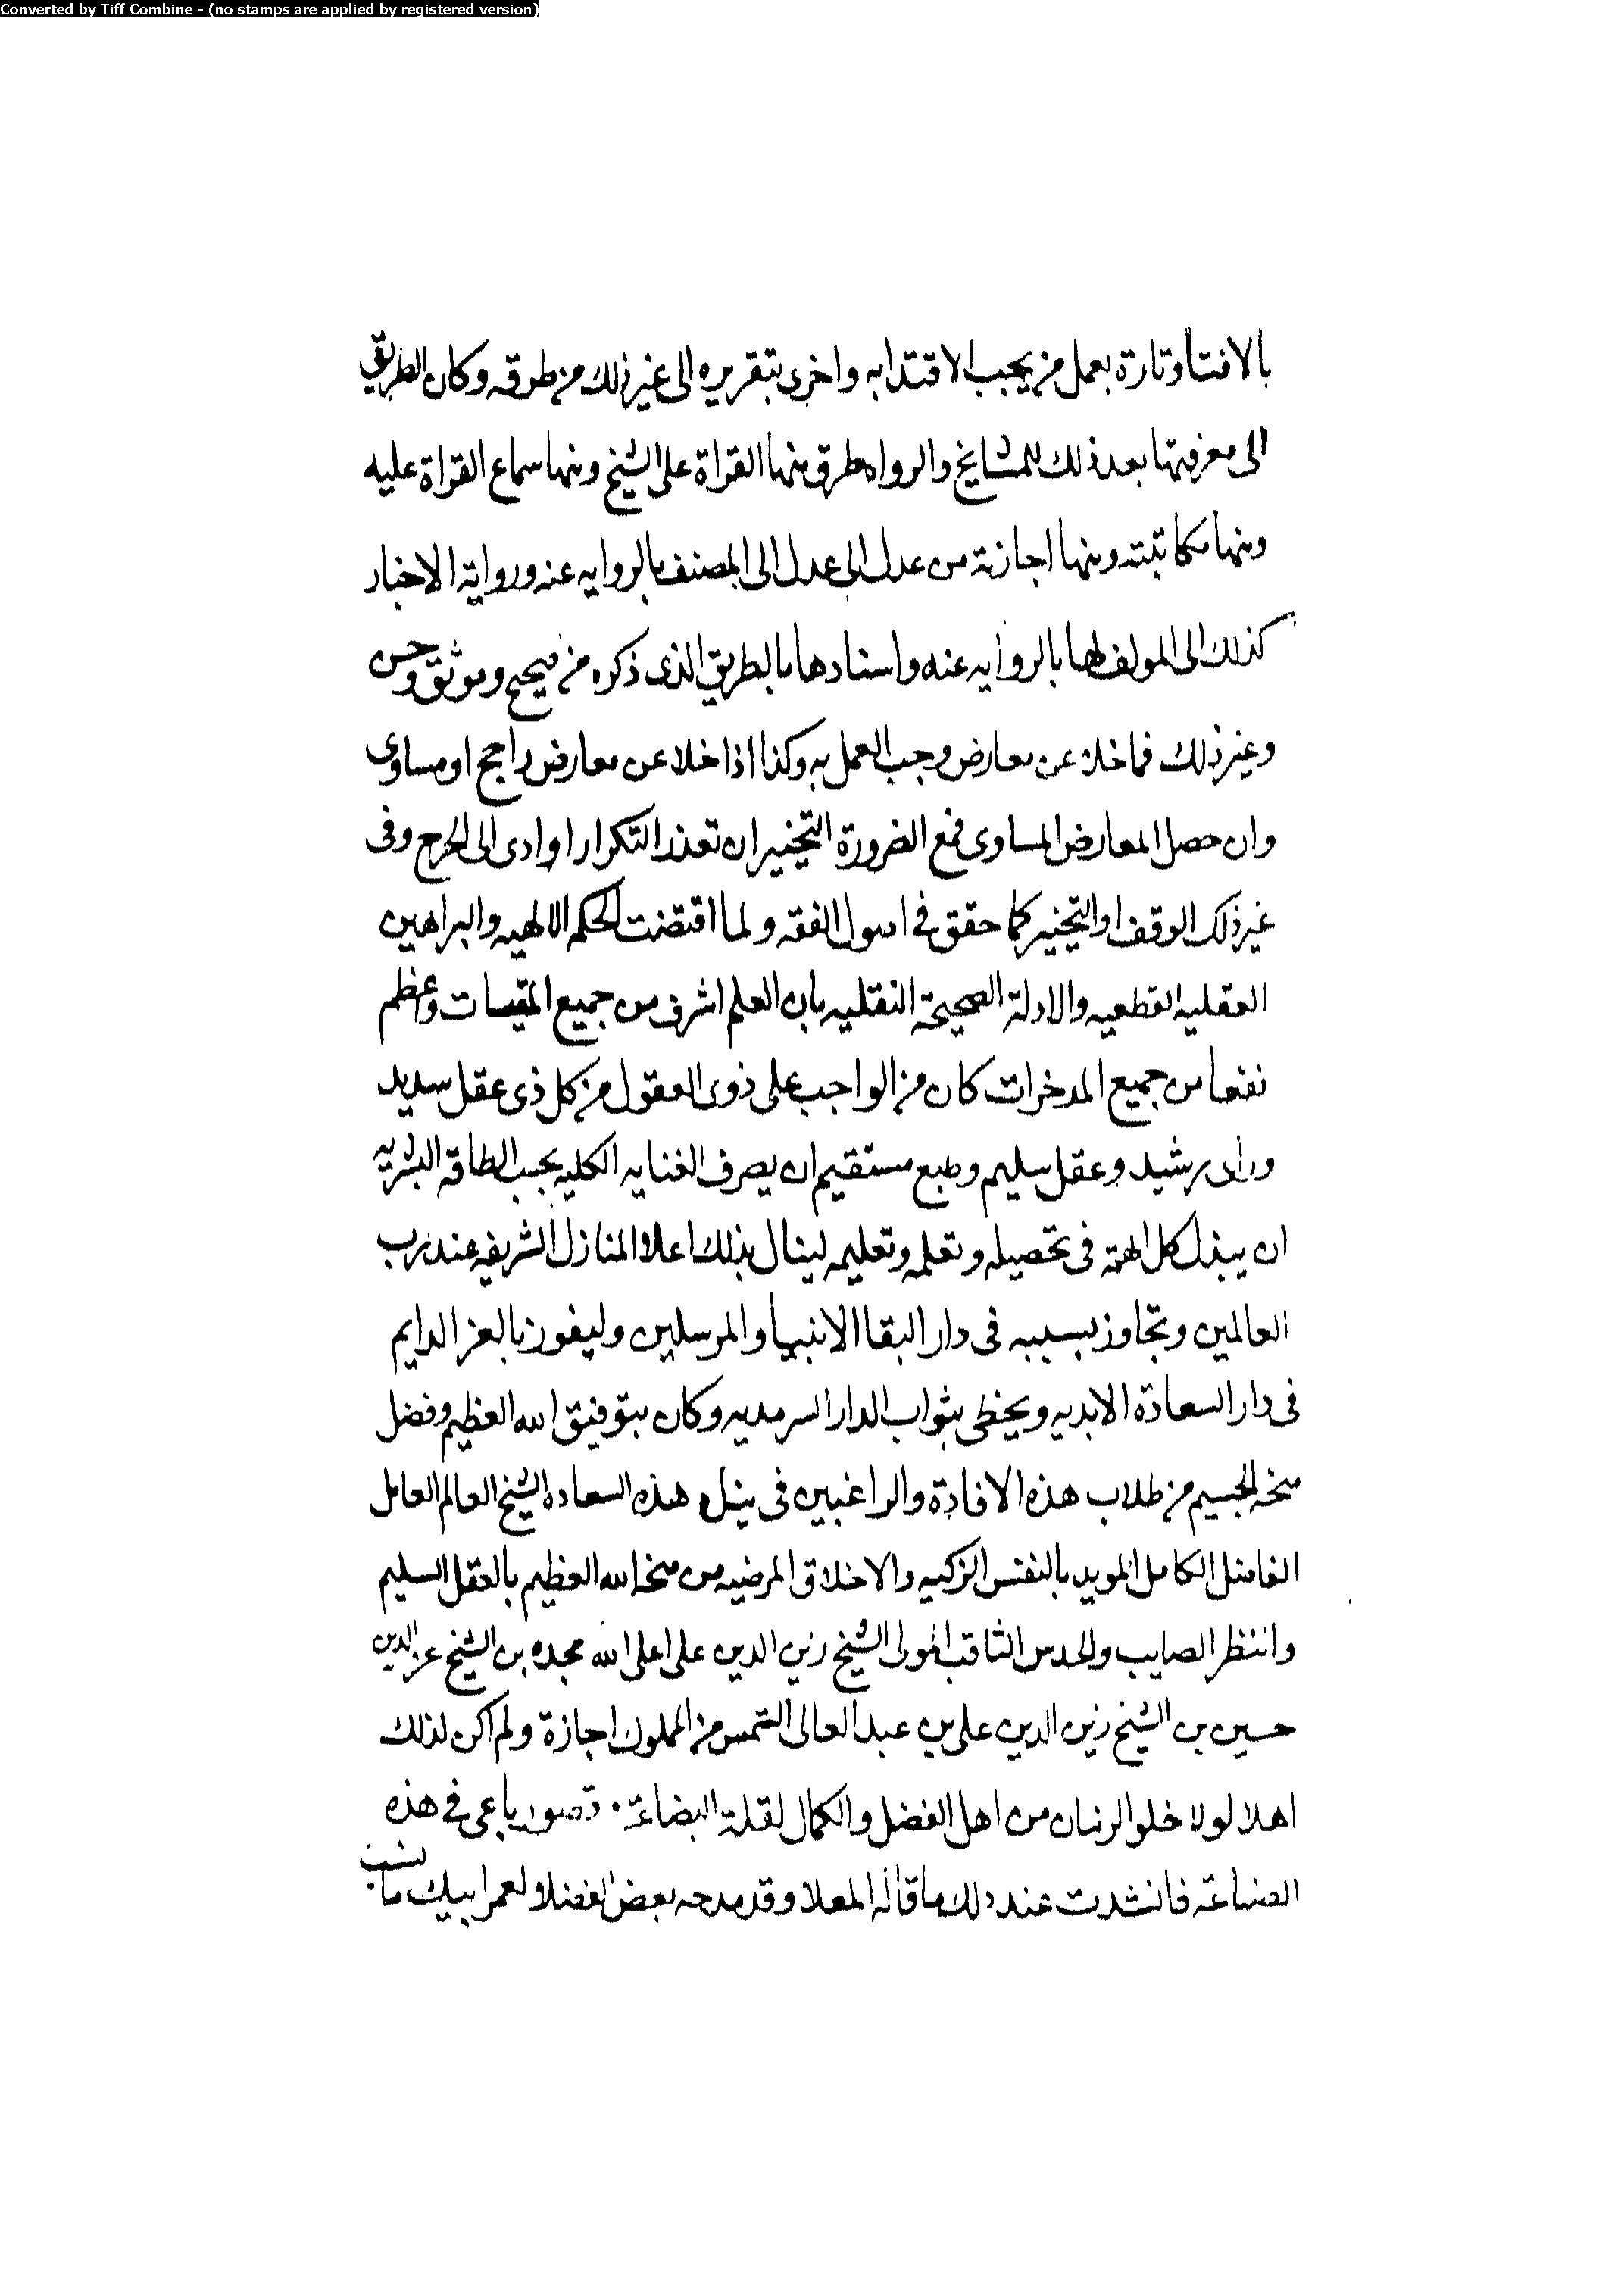 Converted by Tiff Combine - (no stamps are applied by registered version)
بالافتا وتارة بعمل من يجب الاقتدا به واخرى بتقريره الى غير ذلك من طرقه وكان الطريق
الى معرفتها بعد ذلك للمشايخ والرواه طرق منها القراة على الشيخ ومنها سماع القراة عليه
ومنها مكاتبته ومنها اجازة من عدل الى عدل الى المصنف بالروايه عنه ورواية الاخبار
كذلك الى المولف لها بالروايه عنه واسنادها بالطريق الذى ذكره من صحيح وموثق وحسن
وغير ذلك فما خلا عن معارض وجب العمل به وكذا اذا خلا عن معارض راجح او مساوى
وان حصل المعارض المساوى فمع الضرورة التخيير ان تعذر التكرار او ادى الى الحرج وفى
غير ذلك الوقف او التخيير كما حقق فى اصول الفقه ولما اقتضت الحكمه الالهيه والبراهين
العقليه القطعيه والادلة الصحيحة النقليه بان العلم اشرف من جميع المقيسات واعظم
نفعا من جميع المدخرات كان من الواجب على ذوى العقول من كل ذى عقل سديد
وراى رشيد وعقل سليم وطبع مستقيم ان يصرف العنايه الكليه بحسب الطاقه البشريه
ان يبذل كل الهمة فى تحصيله وتعلمه وتعليمه لينال بذلك اعلا المنازل الشريفه عند رب
العالمين وتجاوز بسببه فى دار البقا الانبيا والمرسلين وليفوز بالعز الدايم
فى دار السعادة الابديه ويحظى بثواب الدار السرمديه وكان بتوفيق الله العظيم وفضل
منحه الجسيم من طلاب هذه الافادة والراغبين فى نيل هذه السعاده الشيخ العالم العامل
الفاضل الكامل المويد بالنفس الزكيه والاخلاق المرضيه من منحه الله العظيم بالعقل السليم
والنظر الصايب والحدس الثاقب المولى الشيخ زين الدين على اعلى الله مجده بن الشيخ عز الدين
حسين بن الشيخ زين الدين على بن عبد العالى التمس من المملوك اجازة ولم اكن لذلك
اهلا لولا خلو الزمان من اهل الفضل والكمال لقلة البضاعة. قصور باعى فى هذه
الصناعة فانشدت عند ذلك ما قاله المعلا وقد مدحه بعض الفضلا ولعمر ابيك ما نسب